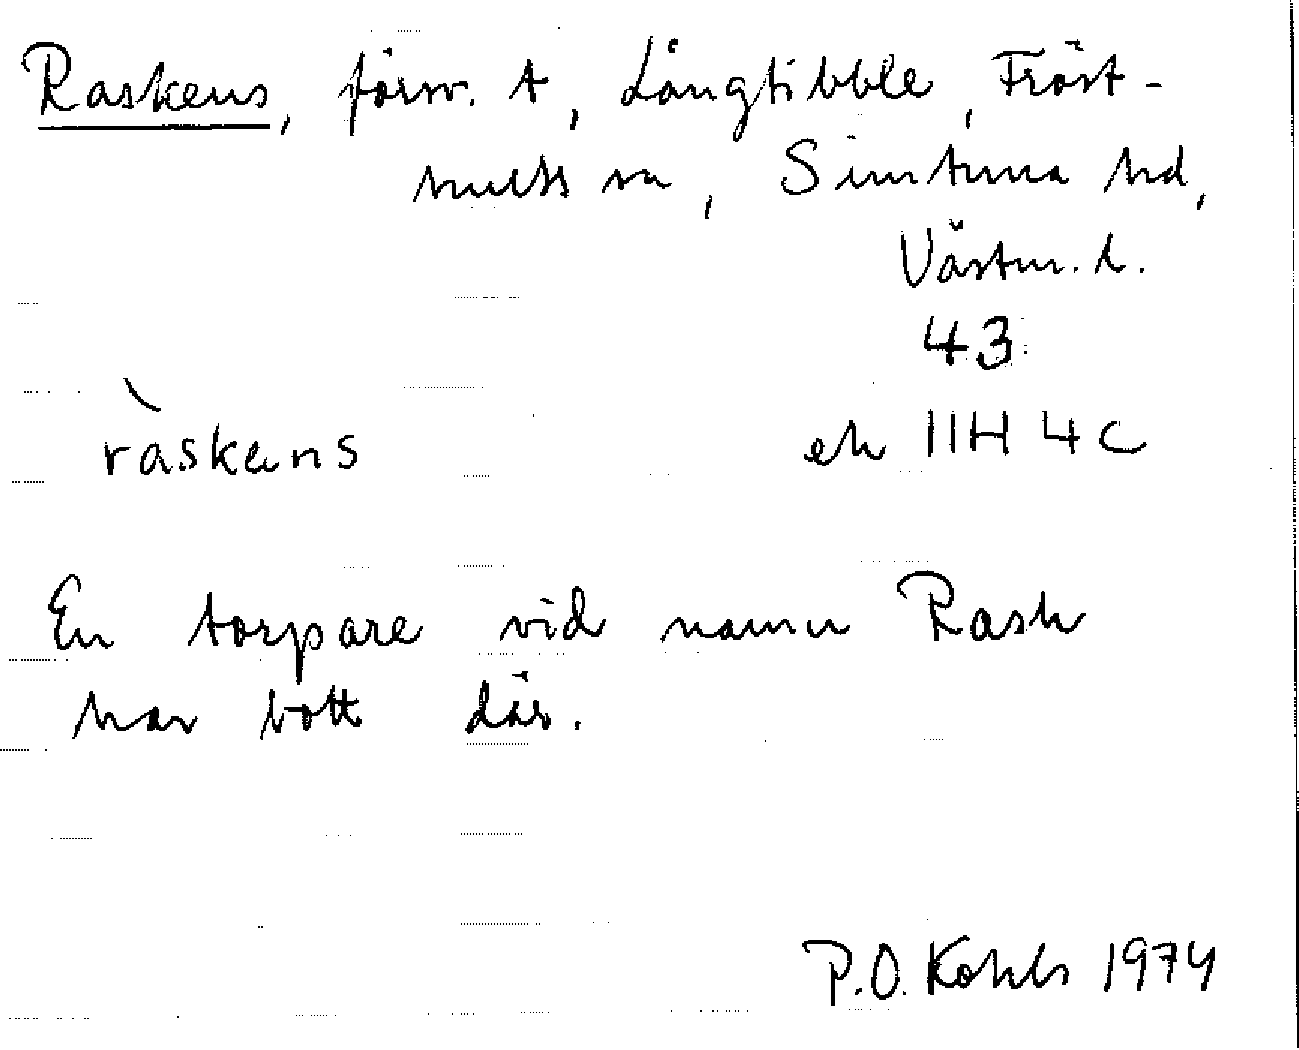 Raskens, försv. t, Långtibble, Fröst-
hults sn, Simtuna hd,
Västm. l.
43
ek 11H 4c
ràskens
En torpare vid namn Rask
har bott där.
P.O. Kohls 1974